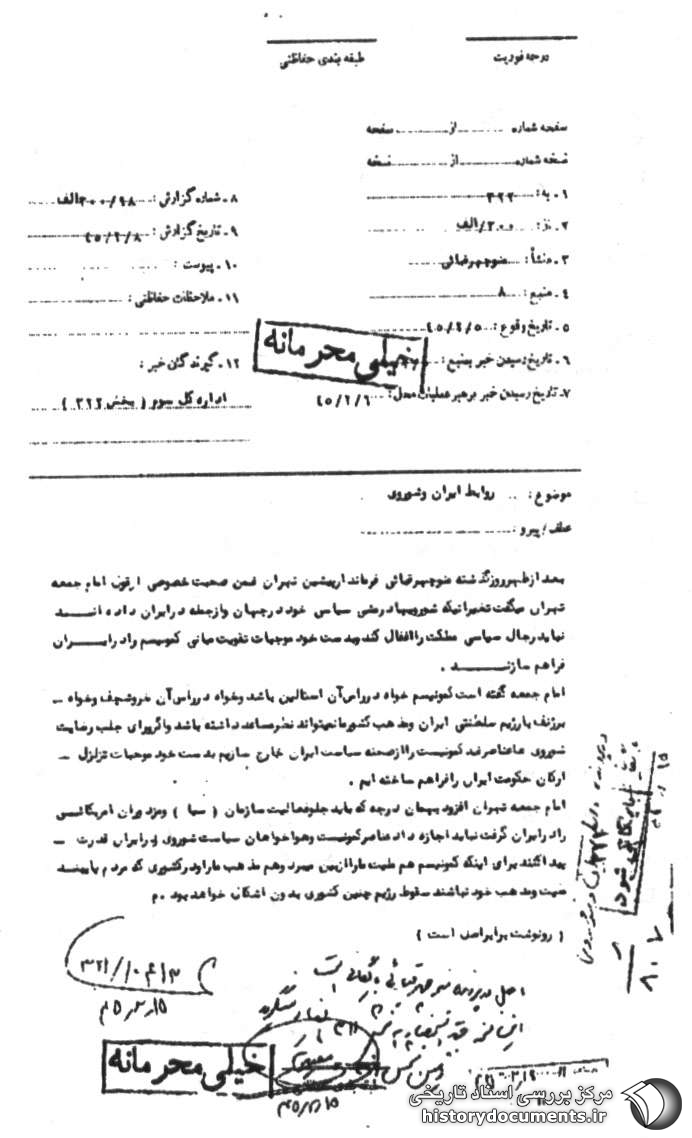 درجه فوریت
طبقه بندی حفاظتی
صفحه شماره ........ از ........ صفحه
نسخه شماره ........ از ........ نسخه
۱ - به : ۳۲۲
۲ - از : ۳۰۰/الف
۳ - منشأ : منوچهر قیائی
۴ - منبع : ۸
۵ - تاریخ وقوع : ۴۵/۲/۵
۶ - تاریخ رسیدن خبر بمنبع :
۷- تاریخ رسیدن خبر برهبر عملیات محل : ۴۵/۲/۶
۸ - شماره گزارش : ۳۰۰/۹۸الف
۹ - تاریخ گزارش : ۴۵/۲/۸
۱۰ - پیوست :
۱۱ - ملاحظات حفاظتی :
۱۲ - گیرندگان خبر :
اداره کل سوم ( بخش ۳۲۲ )
خیلی محرمانه
موضوع : روابط ایران وشوروی
عطف / پیرو :
بعد ازظهر روزگذشته منوچهر قیائی فرماندار پیشین تهران ضمن صحبت خصوصی ازقول امام جمعه
تهران میگفت تغییراتیکه شورویها در مشی سیاسی خود در جهان وازجمله درایران داده انـــد
نباید رجال سیاسی مملکت را اغفال کند و بدست خود موجبات تقویت مبانی کمونیسم را در ایـــران
فراهم سازنـــد .
امام جمعه گفته است کمونیسم خواه درراس آن استالین باشد وخواه درراس آن خروشچف وخواه -
برژنف با رژیم سلطنتی ایران ومذهب کشورما نمیتواند نظر مساعد داشته باشد واگر برای جلب رضایت
شوروی ما عناصر ضد کمونیست را ازصحنه سیاست ایران خارج سازیم بدست خود موجبات تزلزل -
ارکان حکومت ایران را فراهم ساخته ایم .
امام جمعه تهران افزود بهمان درجه که باید جلو فعالیت سازمان ( سیا ) ومزدوران امریکائـی
را در ایران گرفت نباید اجازه داد عناصر کمونیست وهواخواهان سیاست شوروی در ایران قدرت -
پیدا کنند برای اینکه کمونیسم هم ملیت ما را ازبین میبرد وهم مذهب ما را ودر کشوری که مردم پابـنـد
ملیت ومذهب خود نباشند سقوط رژیم چنین کشوری بدون اشکال خواهد بود . م
( رونوشت برابر اصل است )
۴۵٫۳٫۱۵
بایگانی شود
خیلی محرمانه
مرکز بررسی اسناد تاریخی
historydocuments.ir